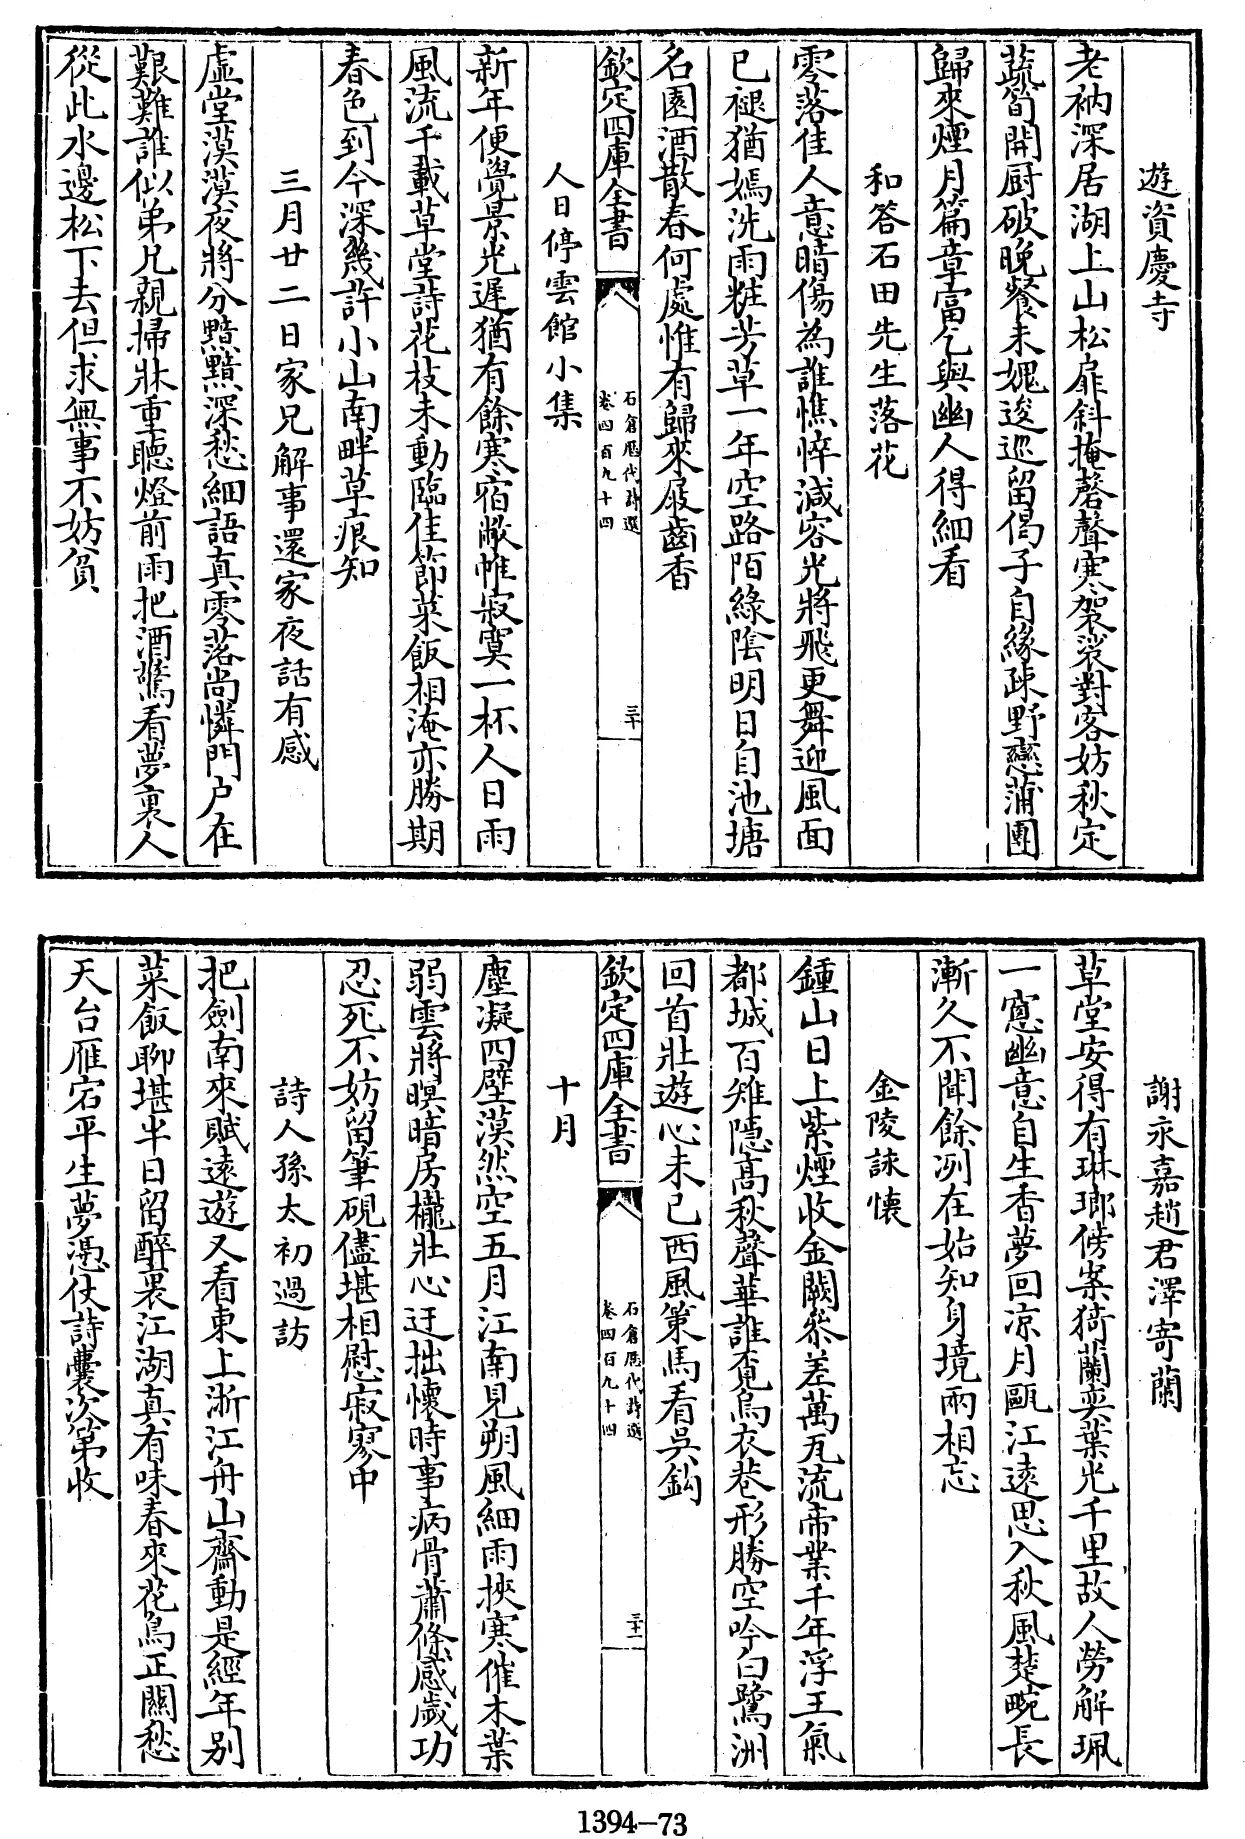 遊資慶寺
老衲深居湖上山松扉斜掩磬聲寒袈裟對客妨秋定
蔬筍開厨破晚餐未媿逡巡留偈子自緣疎野戀蒲團
歸來煙月篇章富乞與幽人得細看
和答石田先生落花
零落佳人意暗傷為誰憔悴減容光將飛更舞迎風面
已褪猶嫣洗雨粧芳草一年空路陌綠陰明日自池塘
名園酒散春何處惟有歸來屐齒香
欽定四庫全書
石倉歷代詩選
卷四百九十四
三十
人日停雲館小集
新年便覺景光遲猶有餘寒宿敝帷寂寞一杯人日雨
風流千載草堂詩花枝未動臨佳節菜飯相淹亦勝期
春色到今深幾許小山南畔草痕知
三月廿二日家兄解事還家夜話有感
虛堂漠漠夜將分黯黯深愁細語真零落尚憐門户在
艱難誰似弟兄親掃牀重聽燈前雨把酒驚看夢裏人
從此水邊松下去但求無事不妨貧
謝永嘉趙君澤寄蘭
草堂安得有琳瑯傍案猗蘭奕葉光千里故人勞解珮
一窻幽意自生香夢回凉月甌江遠思入秋風楚畹長
漸久不聞餘冽在始知身境兩相忘
金陵詠懷
鍾山日上紫煙收金闕參差萬瓦流帝業千年浮王氣
都城百雉隱高秋聲華誰覓烏衣巷形勝空吟白鷺洲
回首壯遊心未已西風策馬看吳鈎
欽定四庫全書
石倉歷代詩選
卷四百九十四
三十一
十月
塵凝四壁漠然空五月江南見朔風細雨挾寒催木葉
弱雲將暝暗房櫳壯心迂拙懷時事病骨蕭條感歲功
忍死不妨留筆硯儘堪相慰寂寥中
詩人孫太初過訪
把劍南來賦遠遊又看東上浙江舟山齋動是經年别
菜飯聊堪半日留醉裏江湖真有味春來花鳥正關愁
天台雁宕平生夢憑仗詩囊次第收
1394-73